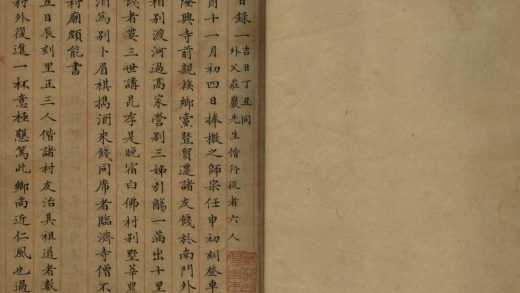 日錄一
吉日丁丑同
外父莊嚴先生偕行從者六人
酉十一月初四日捧檄之師宗任申初刻登車
隆興寺前親族鄉黨暨貿遷諸友餞於南門外
相別渡河過高家營別三姊引觴一滿出十里
餞者婁三世講昆季是晚宿白佛村別墅華豐
酒為別卜眉祺擕酒來餞同席者臨濟寺僧不
村廟頗能書
五日辰刻里正三人偕諸村友治具祖道者數
村外復進一杯意極懇篤此鄉尚近仁風也過